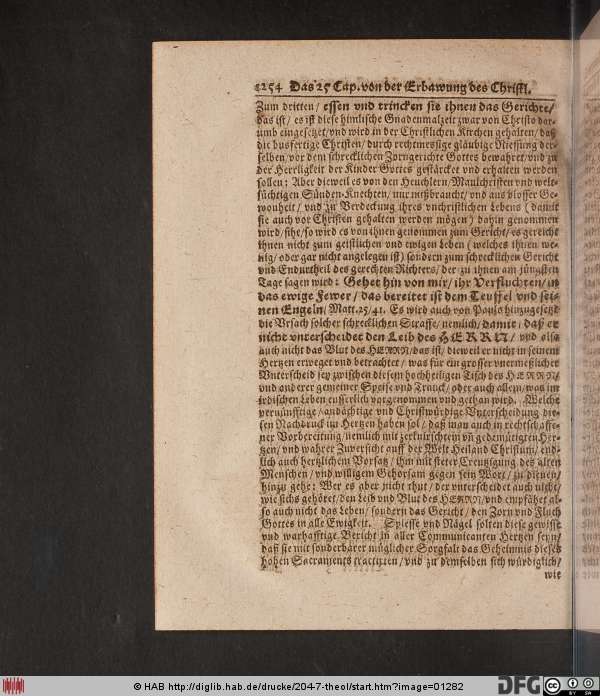 1254 Das 25 Cap. von der Erbawung des Christl.
Zum dritten/ essen vnd trincken sie ihnen das Gerichte/
das ist/ es ist diese himlische Gnadenmalzeit zwar von Christo dar-
umb eingesetzet/ vnd wird in der Christlichen Kirchen gehalten/ daß
die busfertige Christen/ durch rechtmessige gläubige Niessung der-
selben/ vor dem schrecklichen Zorngerichte Gottes bewahret/ vnd zu
der Herrligkeit der Kinder Gottes gestärcket vnd erhalten werden
sollen: Aber dieweil es von den Heuchlern/ Maulchristen vnd welt-
süchtigen Sünden-Knechten/ nur mißbraucht/ vnd aus blosser Ge-
wonheit/ vnd zu Verdeckung ihres vnchristlichen Lebens (damit
sie auch vor Christen gehalten werden mögen) dahin genommen
wird/ sihe/ so wird es von ihnen genommen zum Gericht/ es gereicht
ihnen nicht zum geistlichen vnd ewigen Leben (welches ihnen we-
nig/ oder gar nicht angelegen ist) sondern zum schrecklichen Gericht
vnd Endurtheil des gerechten Richters/ der zu ihnen am jüngsten
Tage sagen wird: Gehet hin von mir/ ihr Verfluchten/ in
das ewige Fewer/ das bereitet ist dem Teuffel vnd sei-
nen Engeln/ Matt. 25/41. Es wird auch von Paulo hinzugesetzt
die Vrsach solcher schrecklichen Straffe/ nemlich/ damit/ daß er
nicht vnterscheidet den Leib des HERRN/ vnd also
auch nicht das Blut des HERRN/ das ist/ dieweil er nicht in seinem
Hertzen erweget vnd betrachtet/ was für ein grosser vnermeßlicher
Vnterscheid sey zwischen diesem hochheiligen Tisch des HERRN/
vnd anderer gemeiner Speise vnd Tranck/ oder auch allem/ was im
irdischen Leben eusserlich vorgenommen vnd gethan wird. Welche
vernünfftige/ andächtige vnd Christwürdige Vnterscheidung die-
sen Nachdruck im Hertzen haben sol/ daß man auch in rechtschaffe-
ner Vorbereitung/ nemlich mit zerknirschtem vn̄ gedemütigten Her-
tzen/ vnd wahrer Zuversicht auff der Welt Heiland Christum/ end-
lich auch hertzlichem Vorsatz/ ihm mit steter Creutzigung des alten
Menschen/ vnd willigem Gehorsam gegen sein Wort/ zu dienen/
hinzu gehe: Wer es aber nicht thut/ der vnterscheidet auch nicht/
wie sichs gehöret/ den Leib vnd Blut des HERRN/ vnd empfähet al-
so auch nicht das Leben/ sondern das Gericht/ den Zorn vnd Fluch
Gottes in alle Ewigkeit. Spiesse vnd Nägel solten diese gewisse
vnd warhafftige Bericht in aller Communicanten Hertzen seyn/
daß sie mit sonderbarer müglicher Sorgfalt das Geheimnis dieses
hohen Sacraments tractirten/ vnd zu demselben sich würdiglich/
wie
© HAB http://diglib.hab.de/drucke/204-7-theol/start.htm?image=01282
DFG
CC BY SA